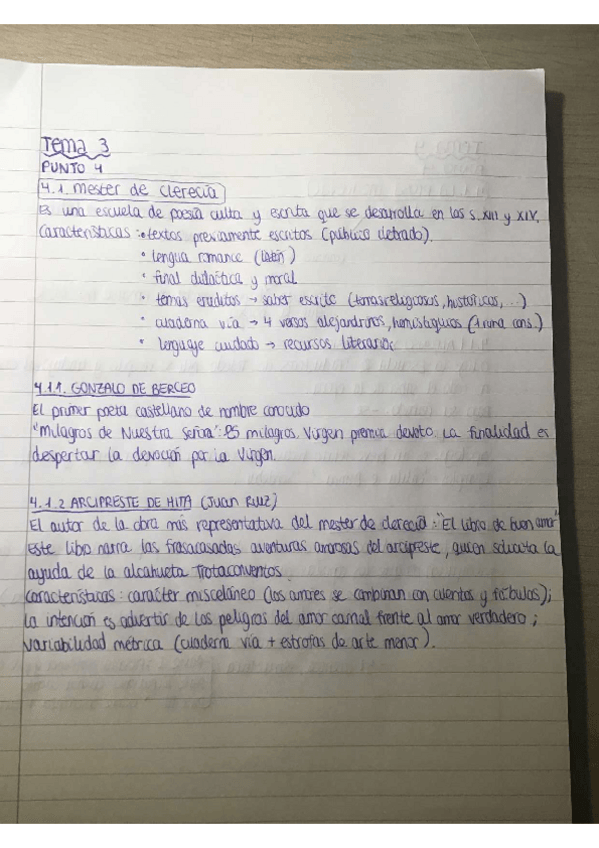 Tema 3
PUNTO 4
4.1. Mester de clerecía
Es una escuela de poesía culta y escrita que se desarrolla en los s. XIII y XIV.
Características: • textos previamente escritos (público letrado).
• lengua romance (latín)
• final didáctica y moral
• temas eruditos → saber escrito (temas religiosos, históricos, ...)
• cuaderna vía → 4 versos alejandrinos, hemistiquios (1 rima cons.)
• lenguaje cuidado → recursos literarios
4.1.1. GONZALO DE BERCEO
El primer poeta castellano de nombre conocido
"Milagros de Nuestra Señora": 25 milagros. Virgen premia devoto. La finalidad es
despertar la devoción por la Virgen.
4.1.2 ARCIPRESTE DE HITA (Juan Ruiz)
El autor de la obra más representativa del mester de clerecía: "El libro de buen amor"
Este libro narra las frasacasadas aventuras amorosas del arcipreste, quien solicita la
ayuda de la alcahueta Trotaconventos.
Características: carácter misceláneo (los amores se combinan con cuentos y fábulas);
la intención es advertir de los peligros del amor carnal frente al amor verdadero;
variabilidad métrica (cuaderna vía + estrofas de arte menor).